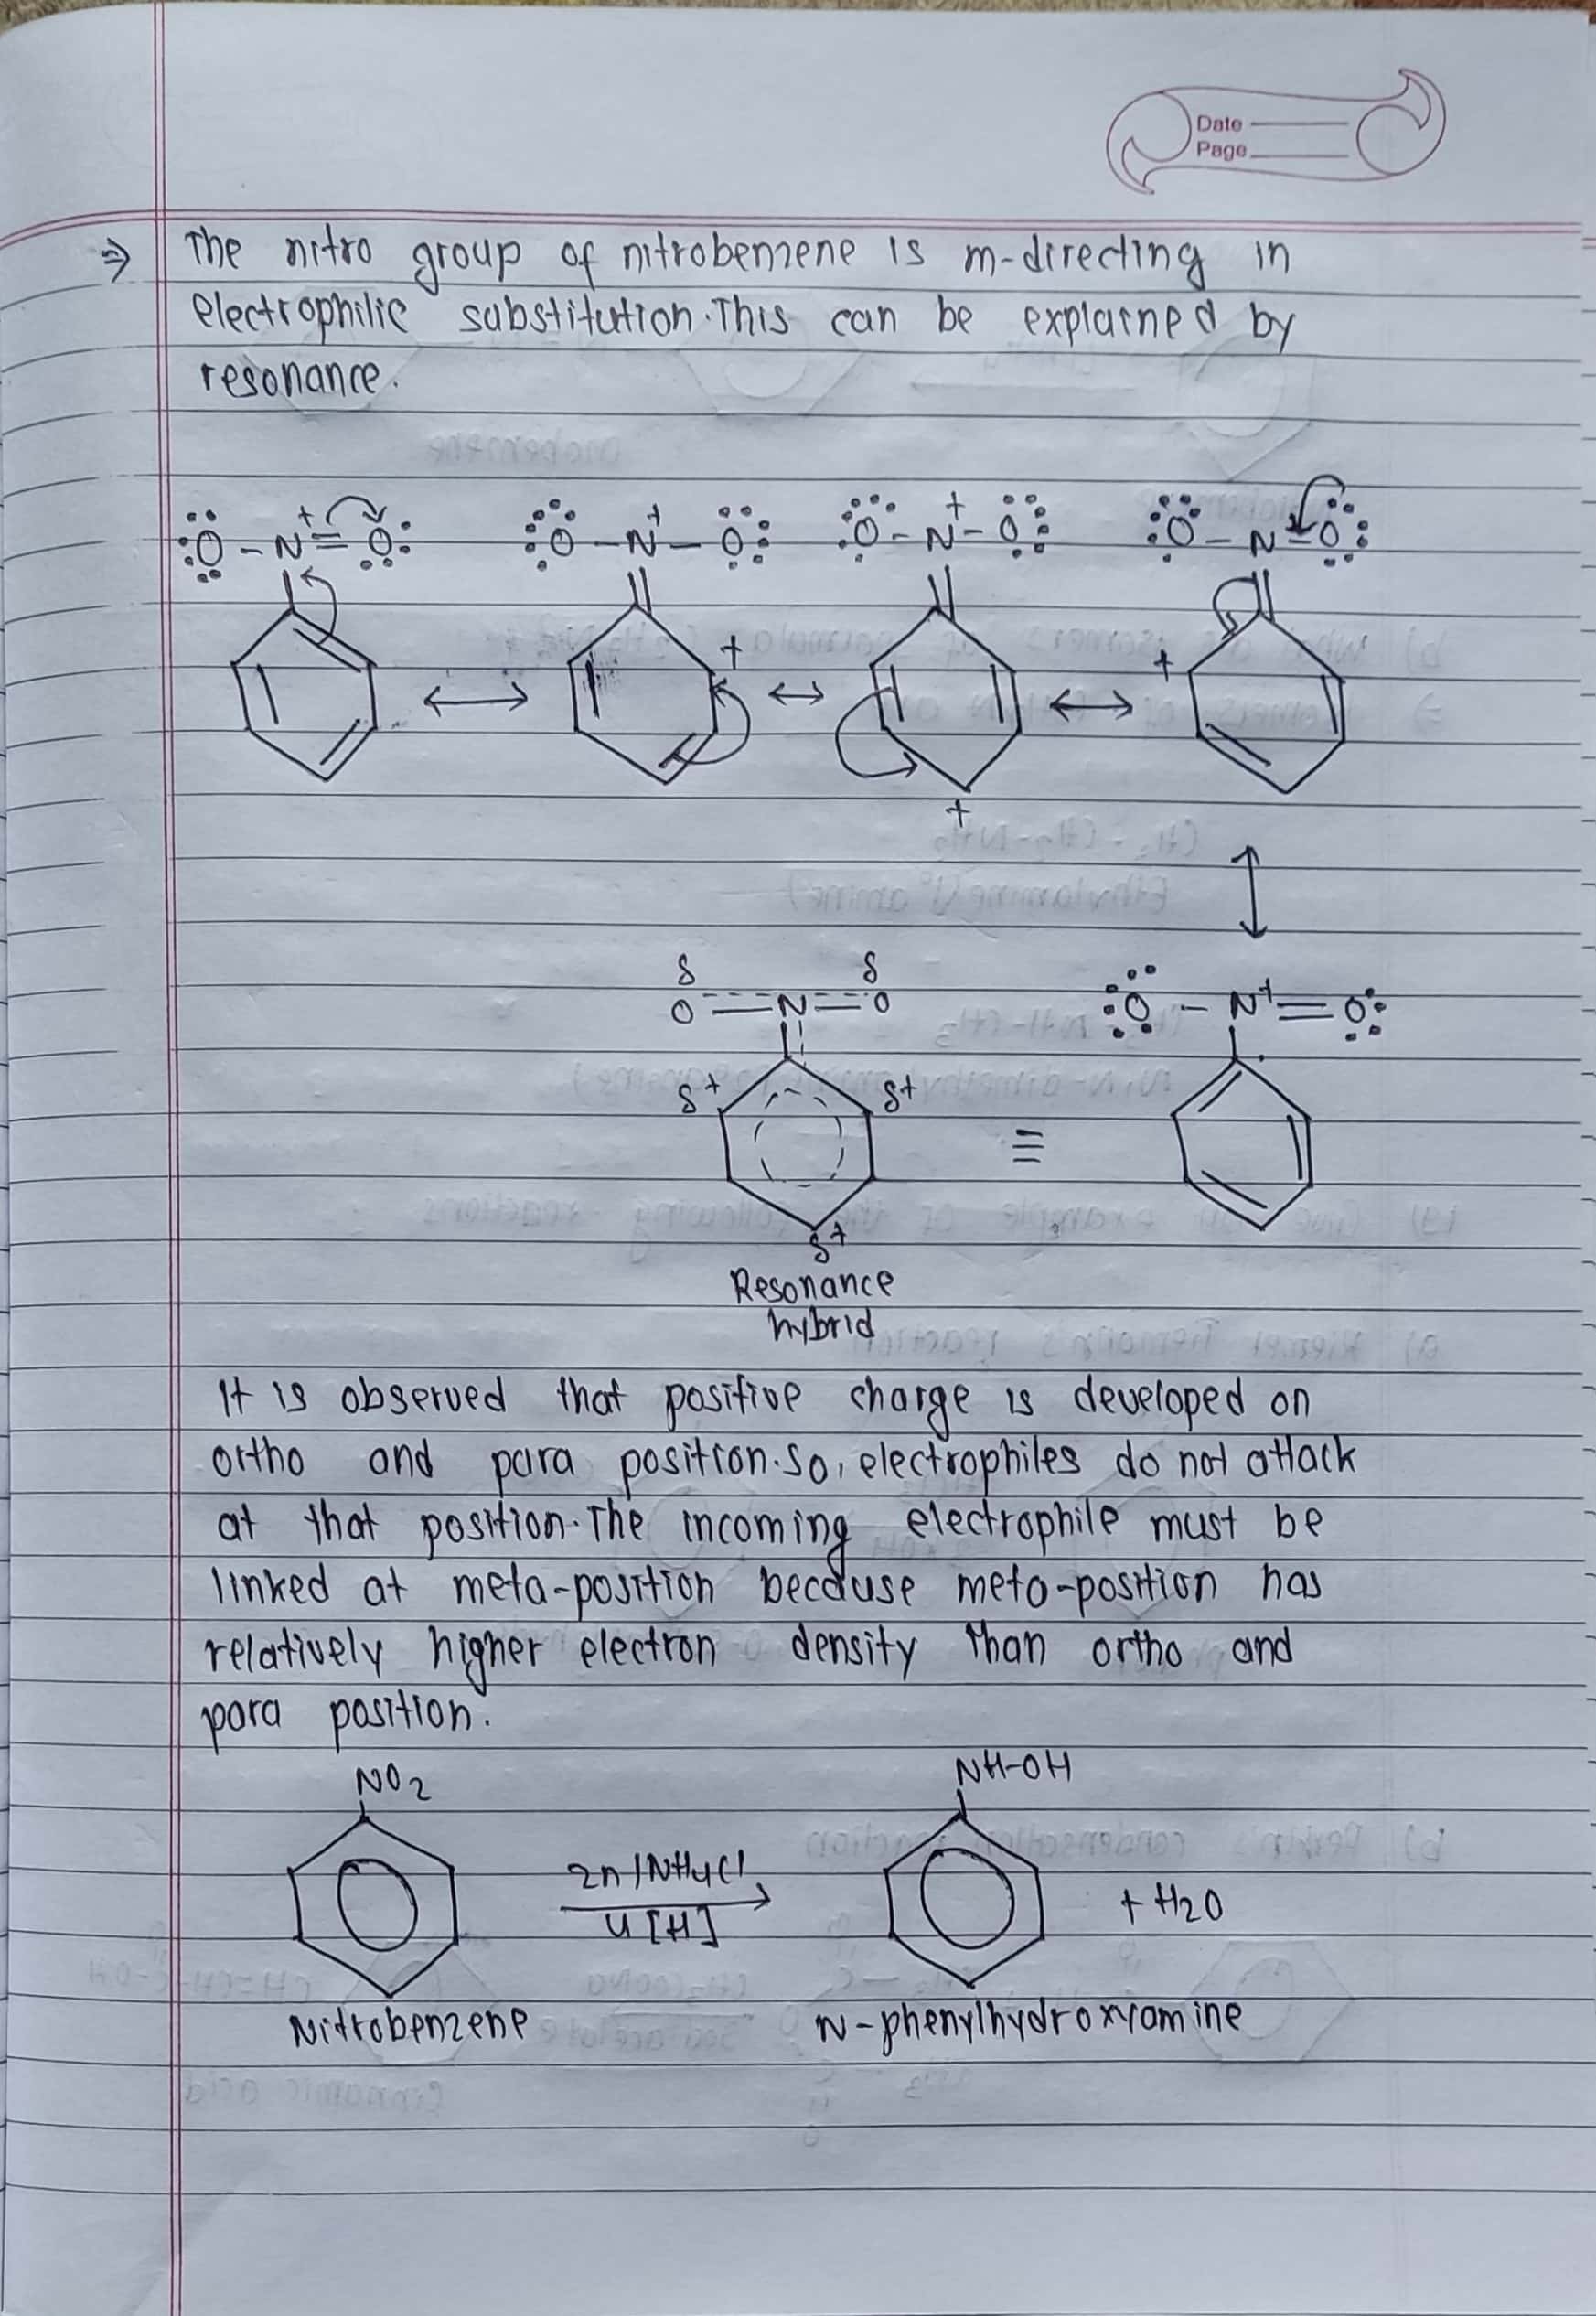 Date
Page
⇒ The nitro group of nitrobenzene is m-directing in
electrophilic substitution. This can be explained by
resonance.
:O - N+ = O: :O - N+ - O: :O - N+ - O: :O - N = O:
↔ + ↔ ↔ +
+
↕
δ δ
O = N = O :O - N+ = O:
δ+ δ+
≡
δ+
Resonance
hybrid
It is observed that positive charge is developed on
ortho and para position. So, electrophiles do not attack
at that position. The incoming electrophile must be
linked at meta-position because meta-position has
relatively higher electron density than ortho and
para position.
NO2 NH-OH
Zn/NH4Cl
4[H] + H2O
Nitrobenzene N-phenylhydroxyamine